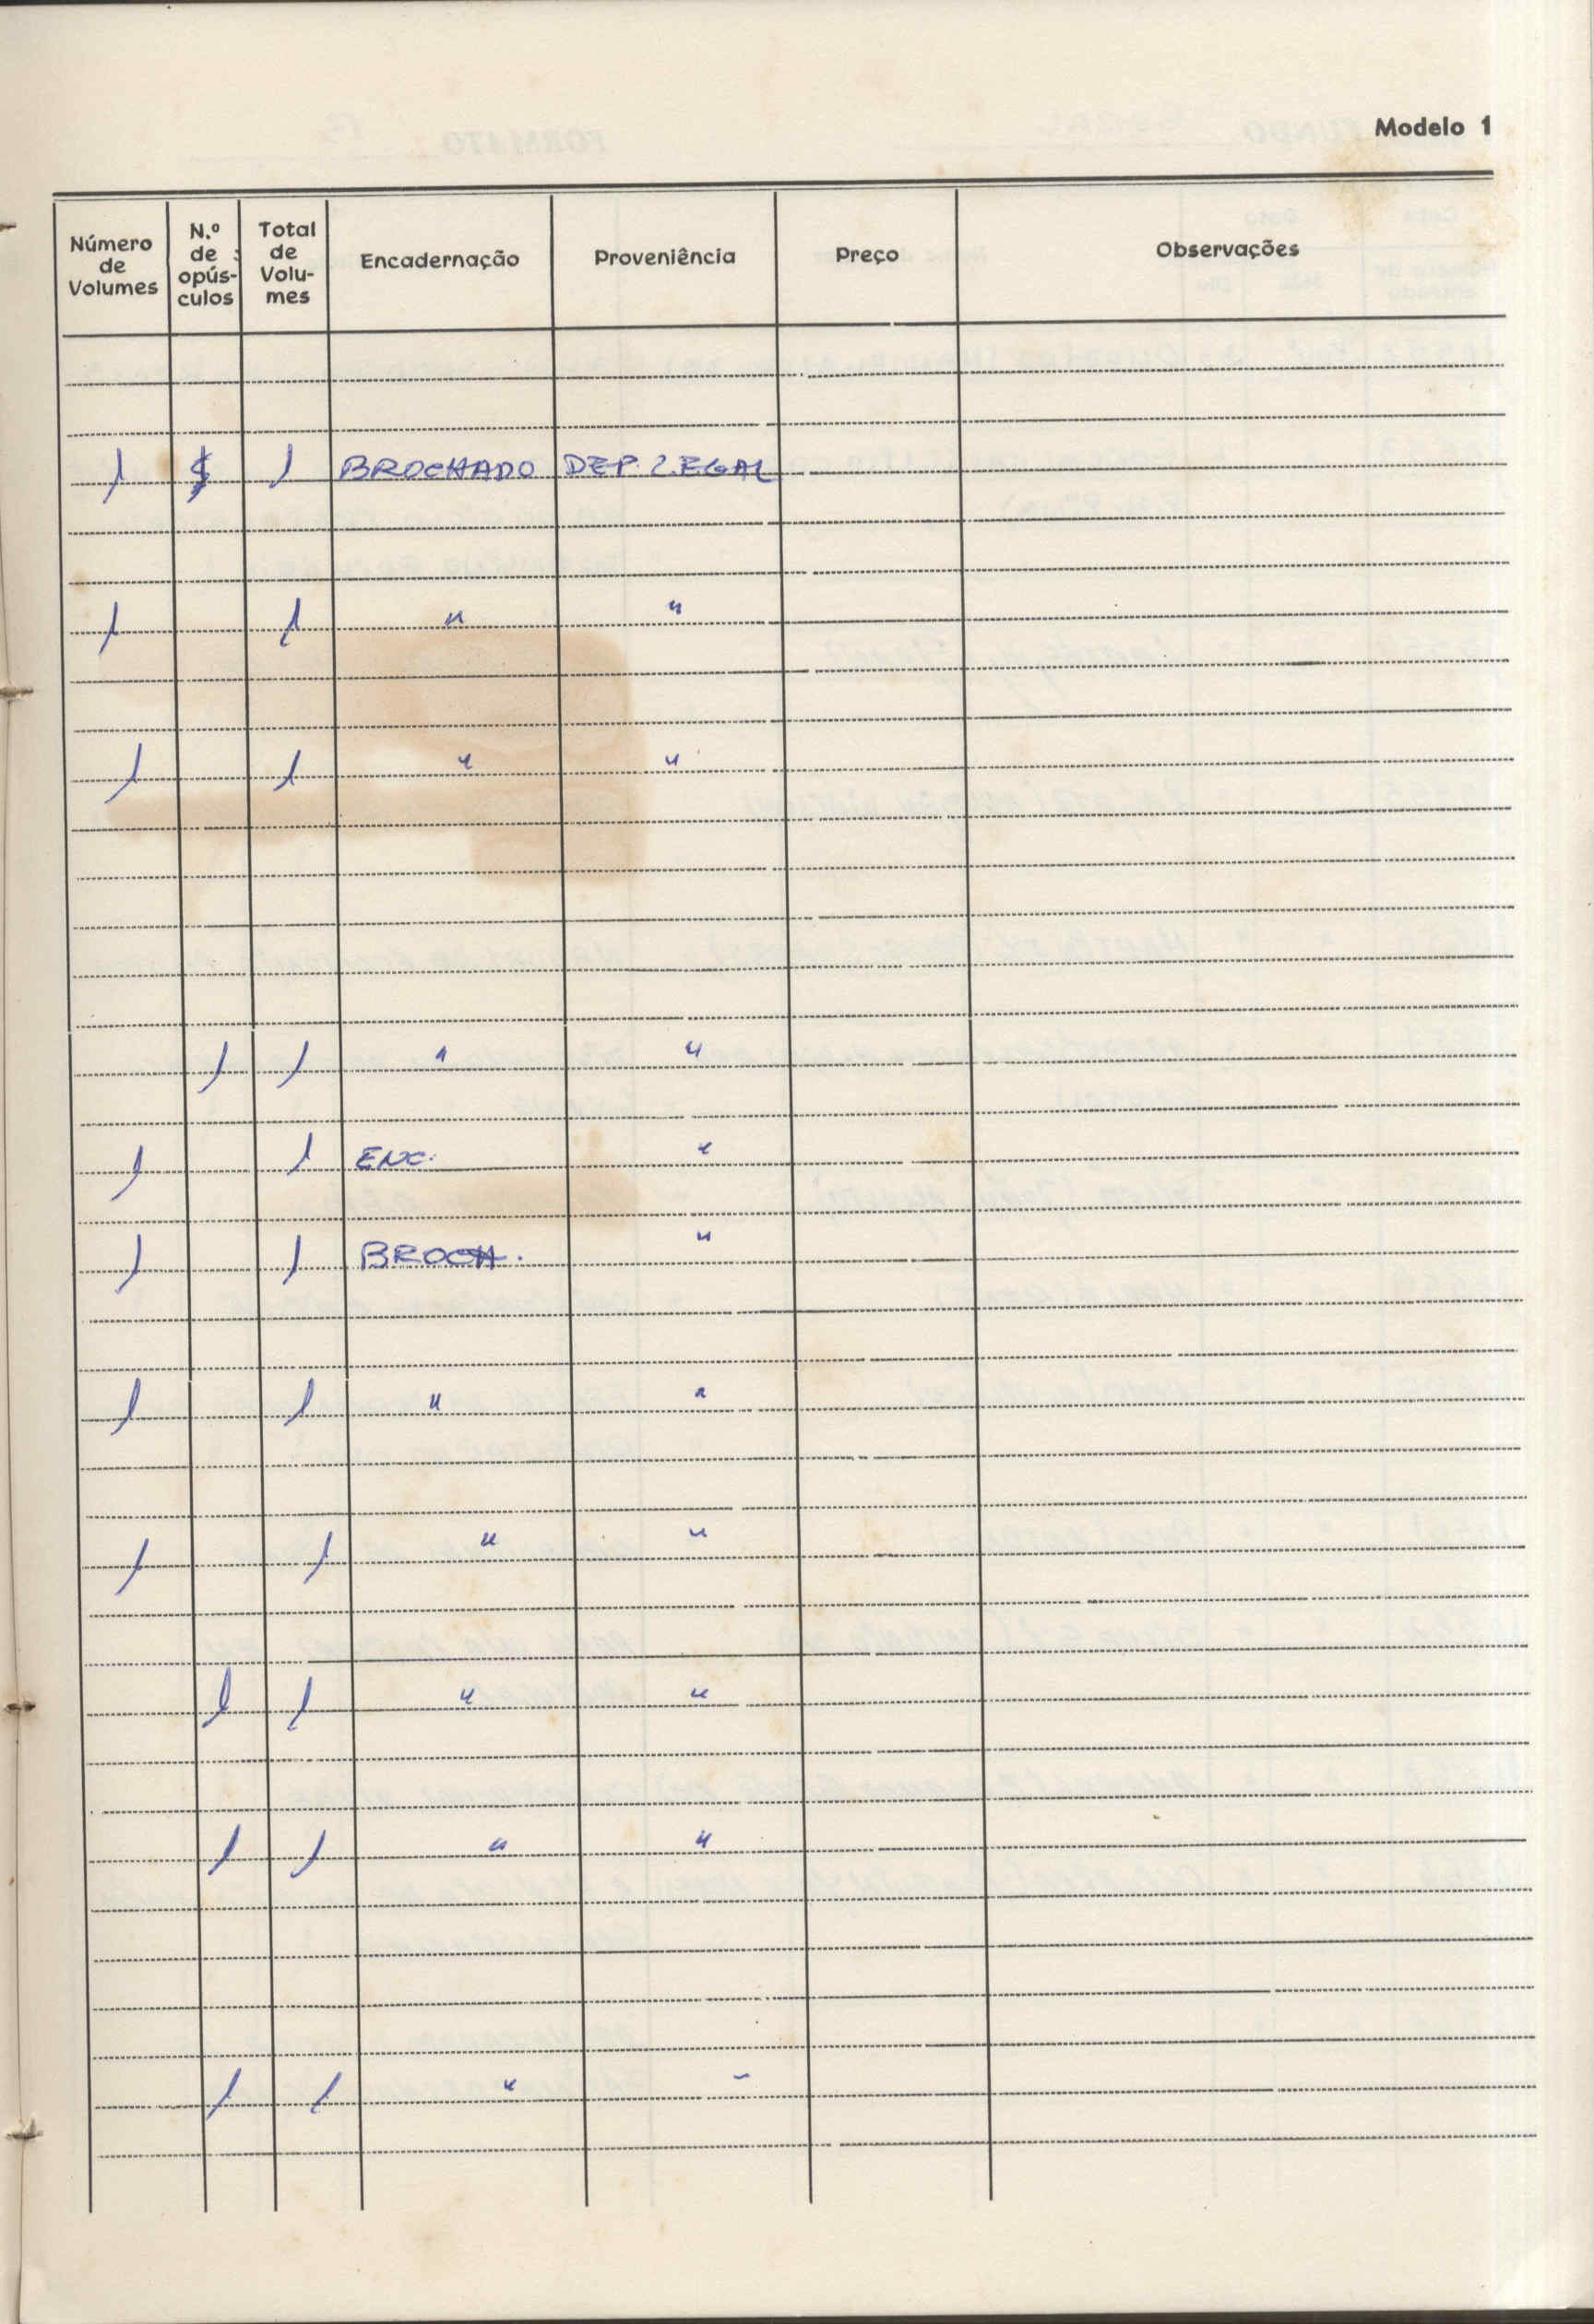 Modelo 1
Número de Volumes N.º de opús-culos Total de Volu-mes Encadernação Proveniência Preço Observações
1 1 BROCHADO DEP. LEGAL
1 1 " "
1 1 " "
1 1 " "
1 1 ENC. "
1 1 BROCH. "
1 1 " "
1 1 " "
1 1 " "
1 1 " "
1 1 " "